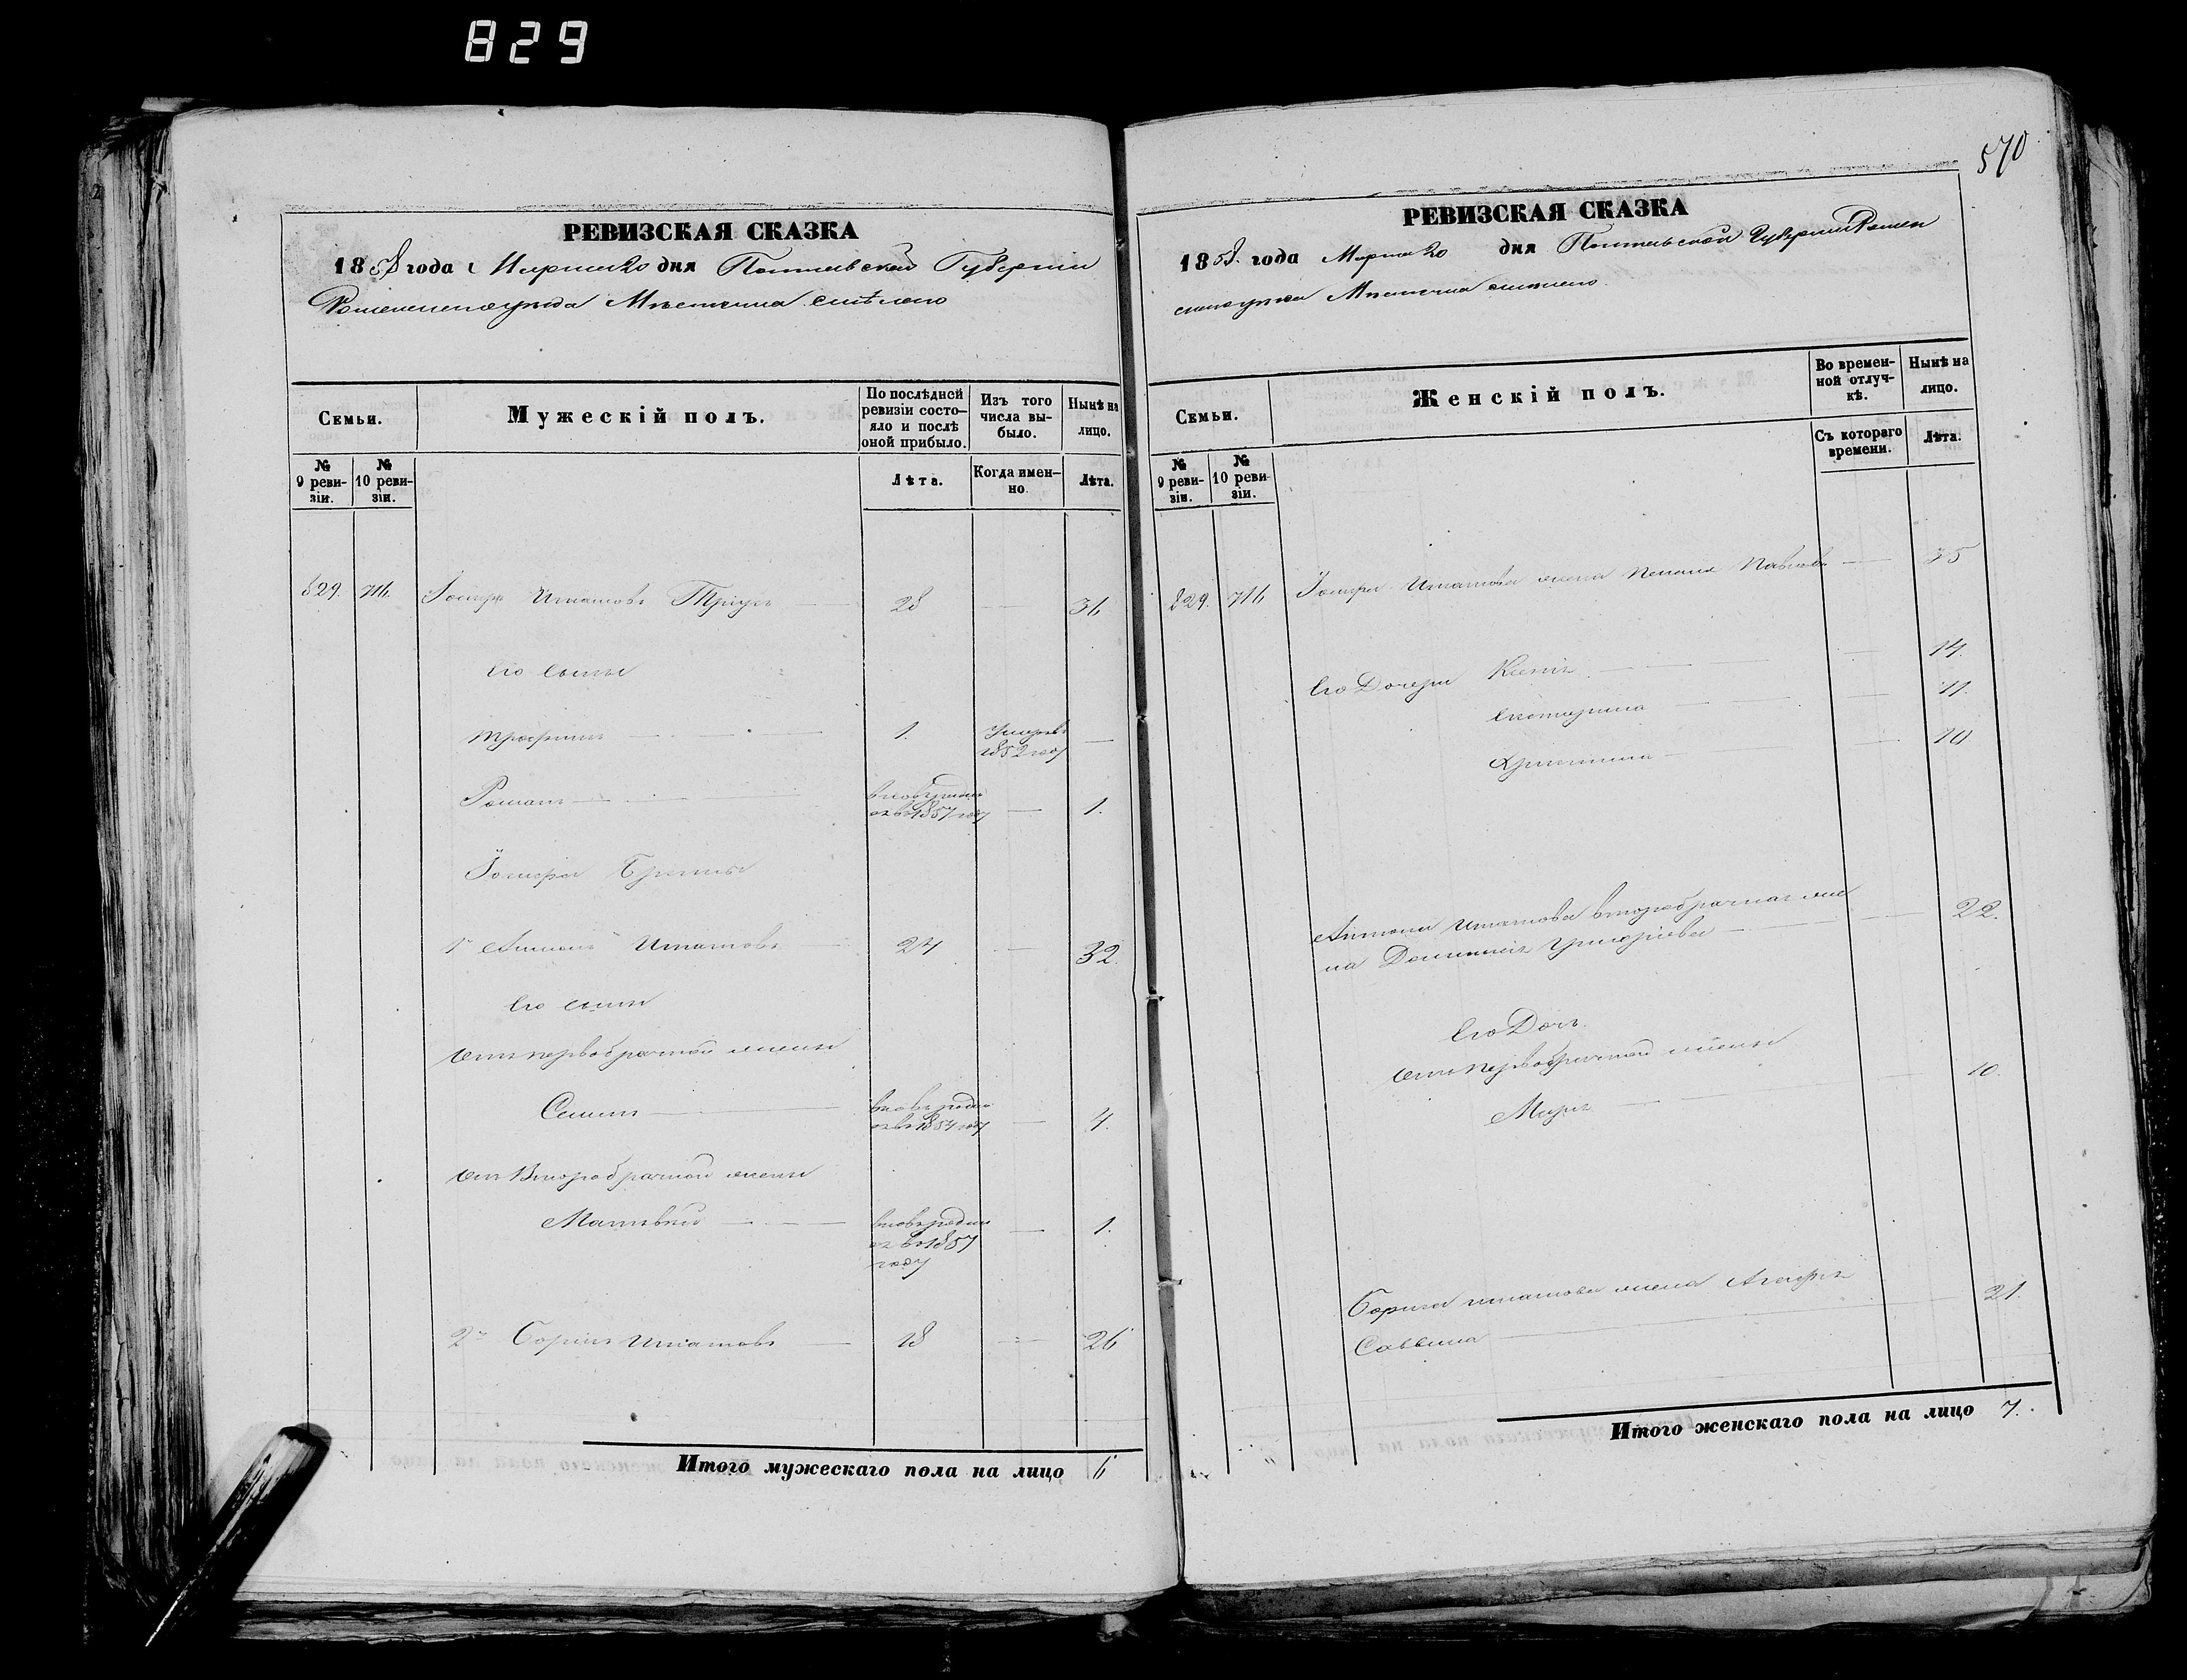 829
РЕВИЗСКАЯ СКАЗКА
1858 года Марта 20 дня Полтавской Губернии
Роменскаго уезда Местечка Смѣлаго
Семьи.
Мужескій полъ.
По послѣдней ревизіи состояло и послѣ оной прибыло.
Изъ того числа выбыло.
Нынѣ на лицо.
№ 9 ревизіи.
№ 10 ревизіи.
Лѣта.
Когда именно.
Лѣта.
829. 716. Іосифъ Игнатовъ 28 — 36
Его сыны
Трофимъ — 1. Умеръ въ 1852 году —
Романъ — вновь рожденъ въ 1857 году — 1.
Іосифа Братья
1й Антонъ Игнатовъ 24 — 32.
Его сыны
отъ первобрачной жены
Семенъ — вновь рожденъ въ 1854 году — 4.
отъ Второбрачной жены
Матвѣй — вновь рожденъ въ 1857 году — 1.
2й Борисъ Игнатовъ — 18 — 26
Итого мужескаго пола на лицо 6
570
РЕВИЗСКАЯ СКАЗКА
1858. года Марта 20 дня Полтавской Губернии Ромен
скаго уезда Местечка Смелаго.
Семьи.
Женскій полъ.
Во временной отлучкѣ.
Нынѣ на лицо.
№ 9 ревизіи.
№ 10 ревизіи.
Съ котораго времени.
Лѣта.
829. 716 Іосифа Игнатова жена Павлова — 35
Его Дочери Ксенія — 14.
Екатерина — 11.
Христина — 10
Антона Игнатова второбрачная же
на Домникія Григоріева — 22.
Его Дочь
отъ первобрачной жены
Марія — 10.
Бориса Игнатова жена Агафія
Саввина — 21.
Итого женскаго пола на лицо 7.